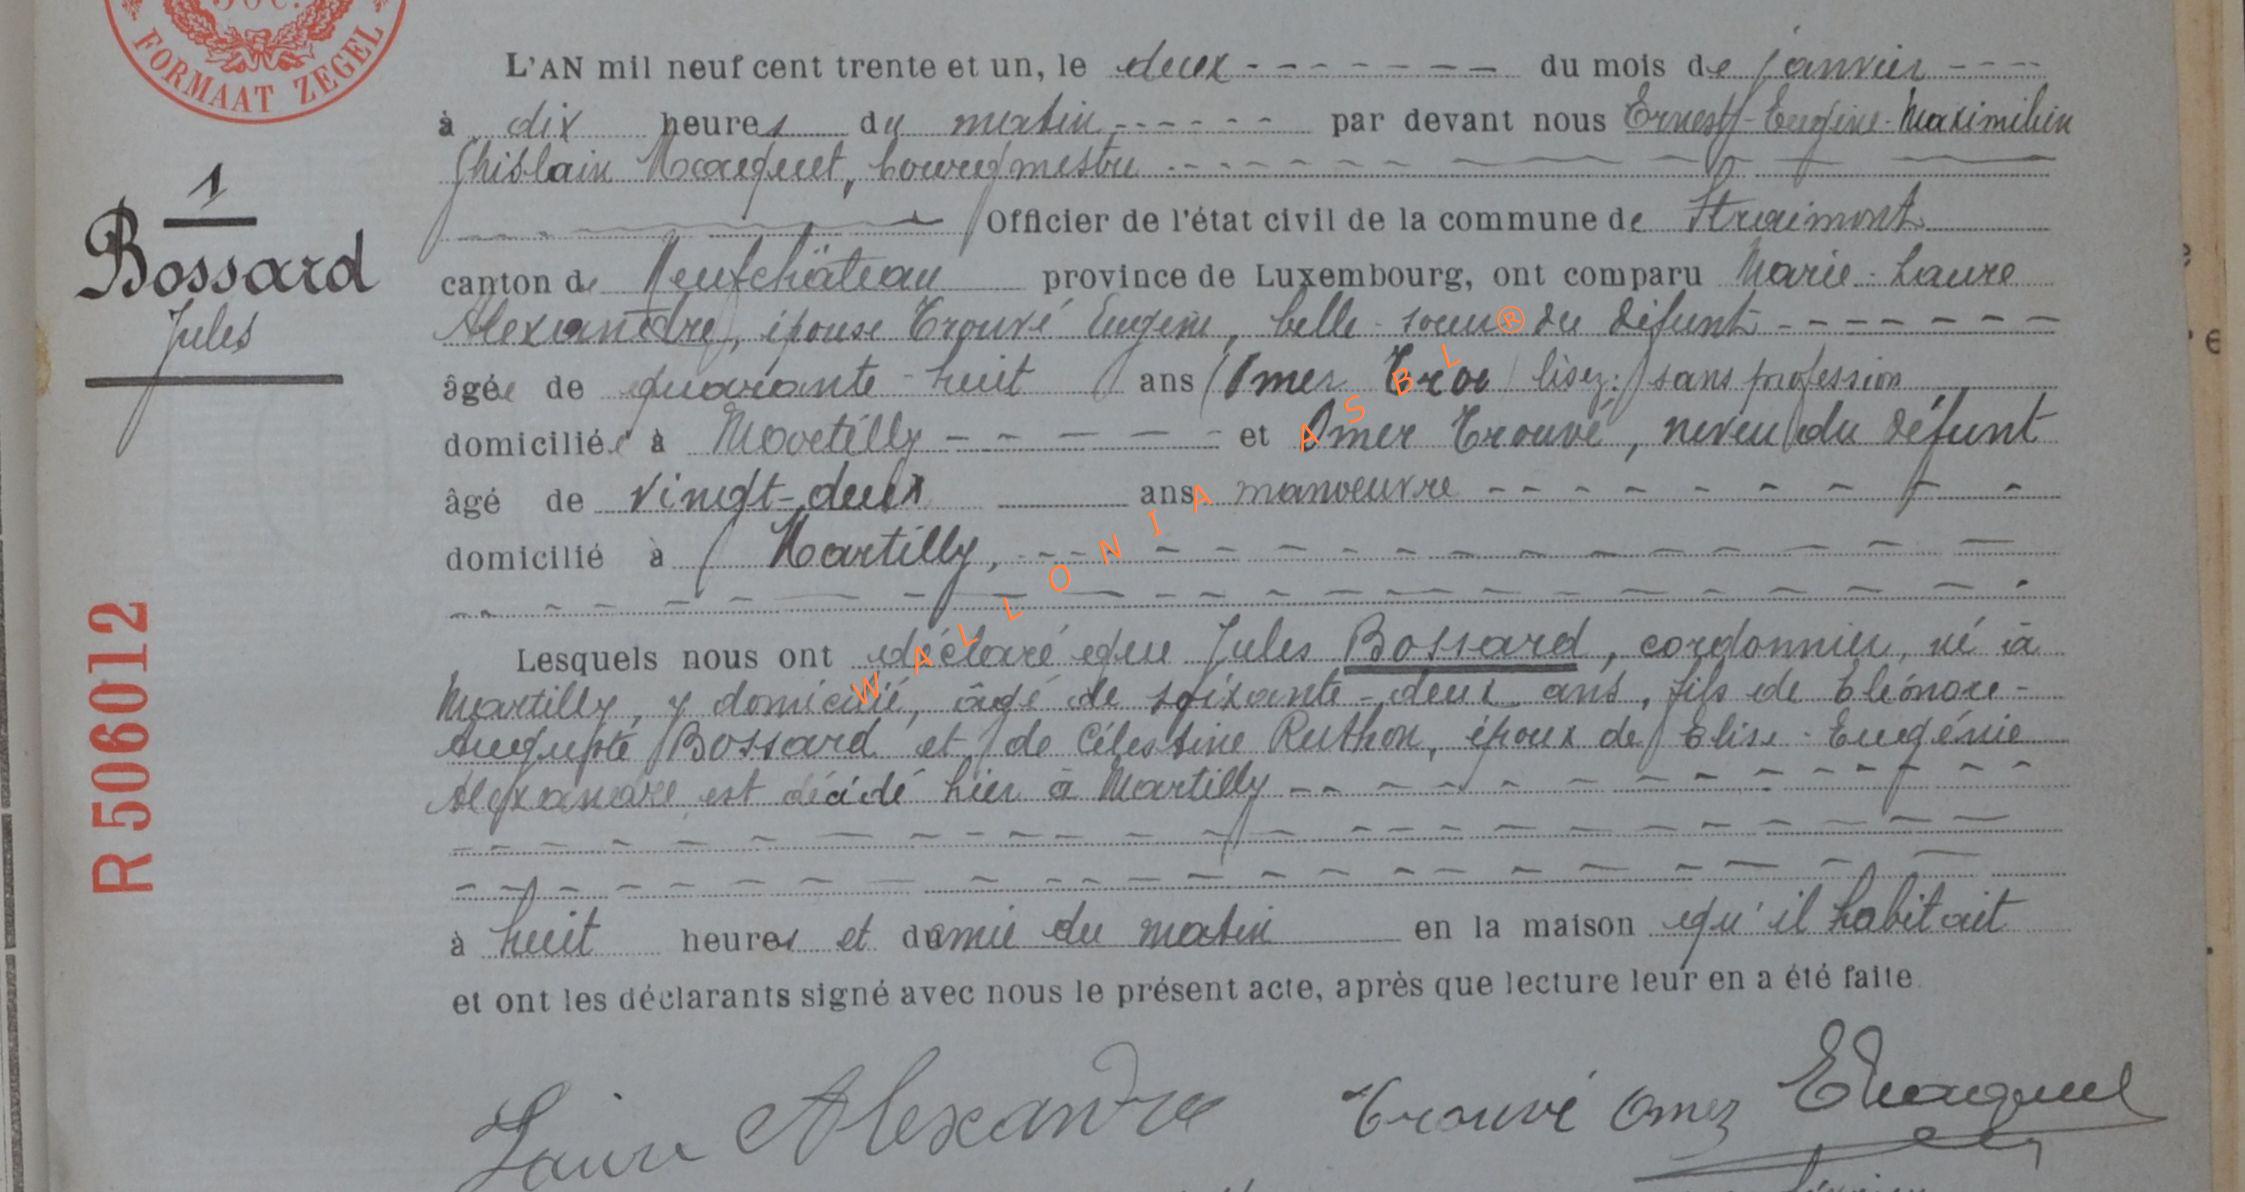 50c.
FORMAAT ZEGEL
1
Bossard
Jules
R 506012
L'AN mil neuf cent trente et un, le deux du mois de janvier
à dix heures du matin par devant nous Ernest-Eugène-Maximilien
Ghislain Maquet, bourgmestre
Officier de l'état civil de la commune de Straimont
canton de Neufchâteau province de Luxembourg, ont comparu Marie-Laure
Alexandre, épouse Trouvé Eugène, belle-soeur du défunt
âgée de quarante-huit ans (Omer Trou lisez:) sans profession
domiciliée à Martilly et Omer Trouvé, neveu du défunt
âgé de vingt-deux ans manoeuvre
domicilié à Martilly,
Lesquels nous ont déclaré que Jules Bossard, cordonnier, né à
Martilly, y domicilié, âgé de soixante-deux ans, fils de Eléonore-
Auguste Bossard et de Célestine Ruthon, époux de Elise-Eugénie
Alexandre est décédé hier à Martilly
à huit heures et demie du matin en la maison qu'il habitait
et ont les déclarants signé avec nous le présent acte, après que lecture leur en a été faite
Laure Alexandre Trouvé Omer EMaquet
WALLONIA ASBL ®